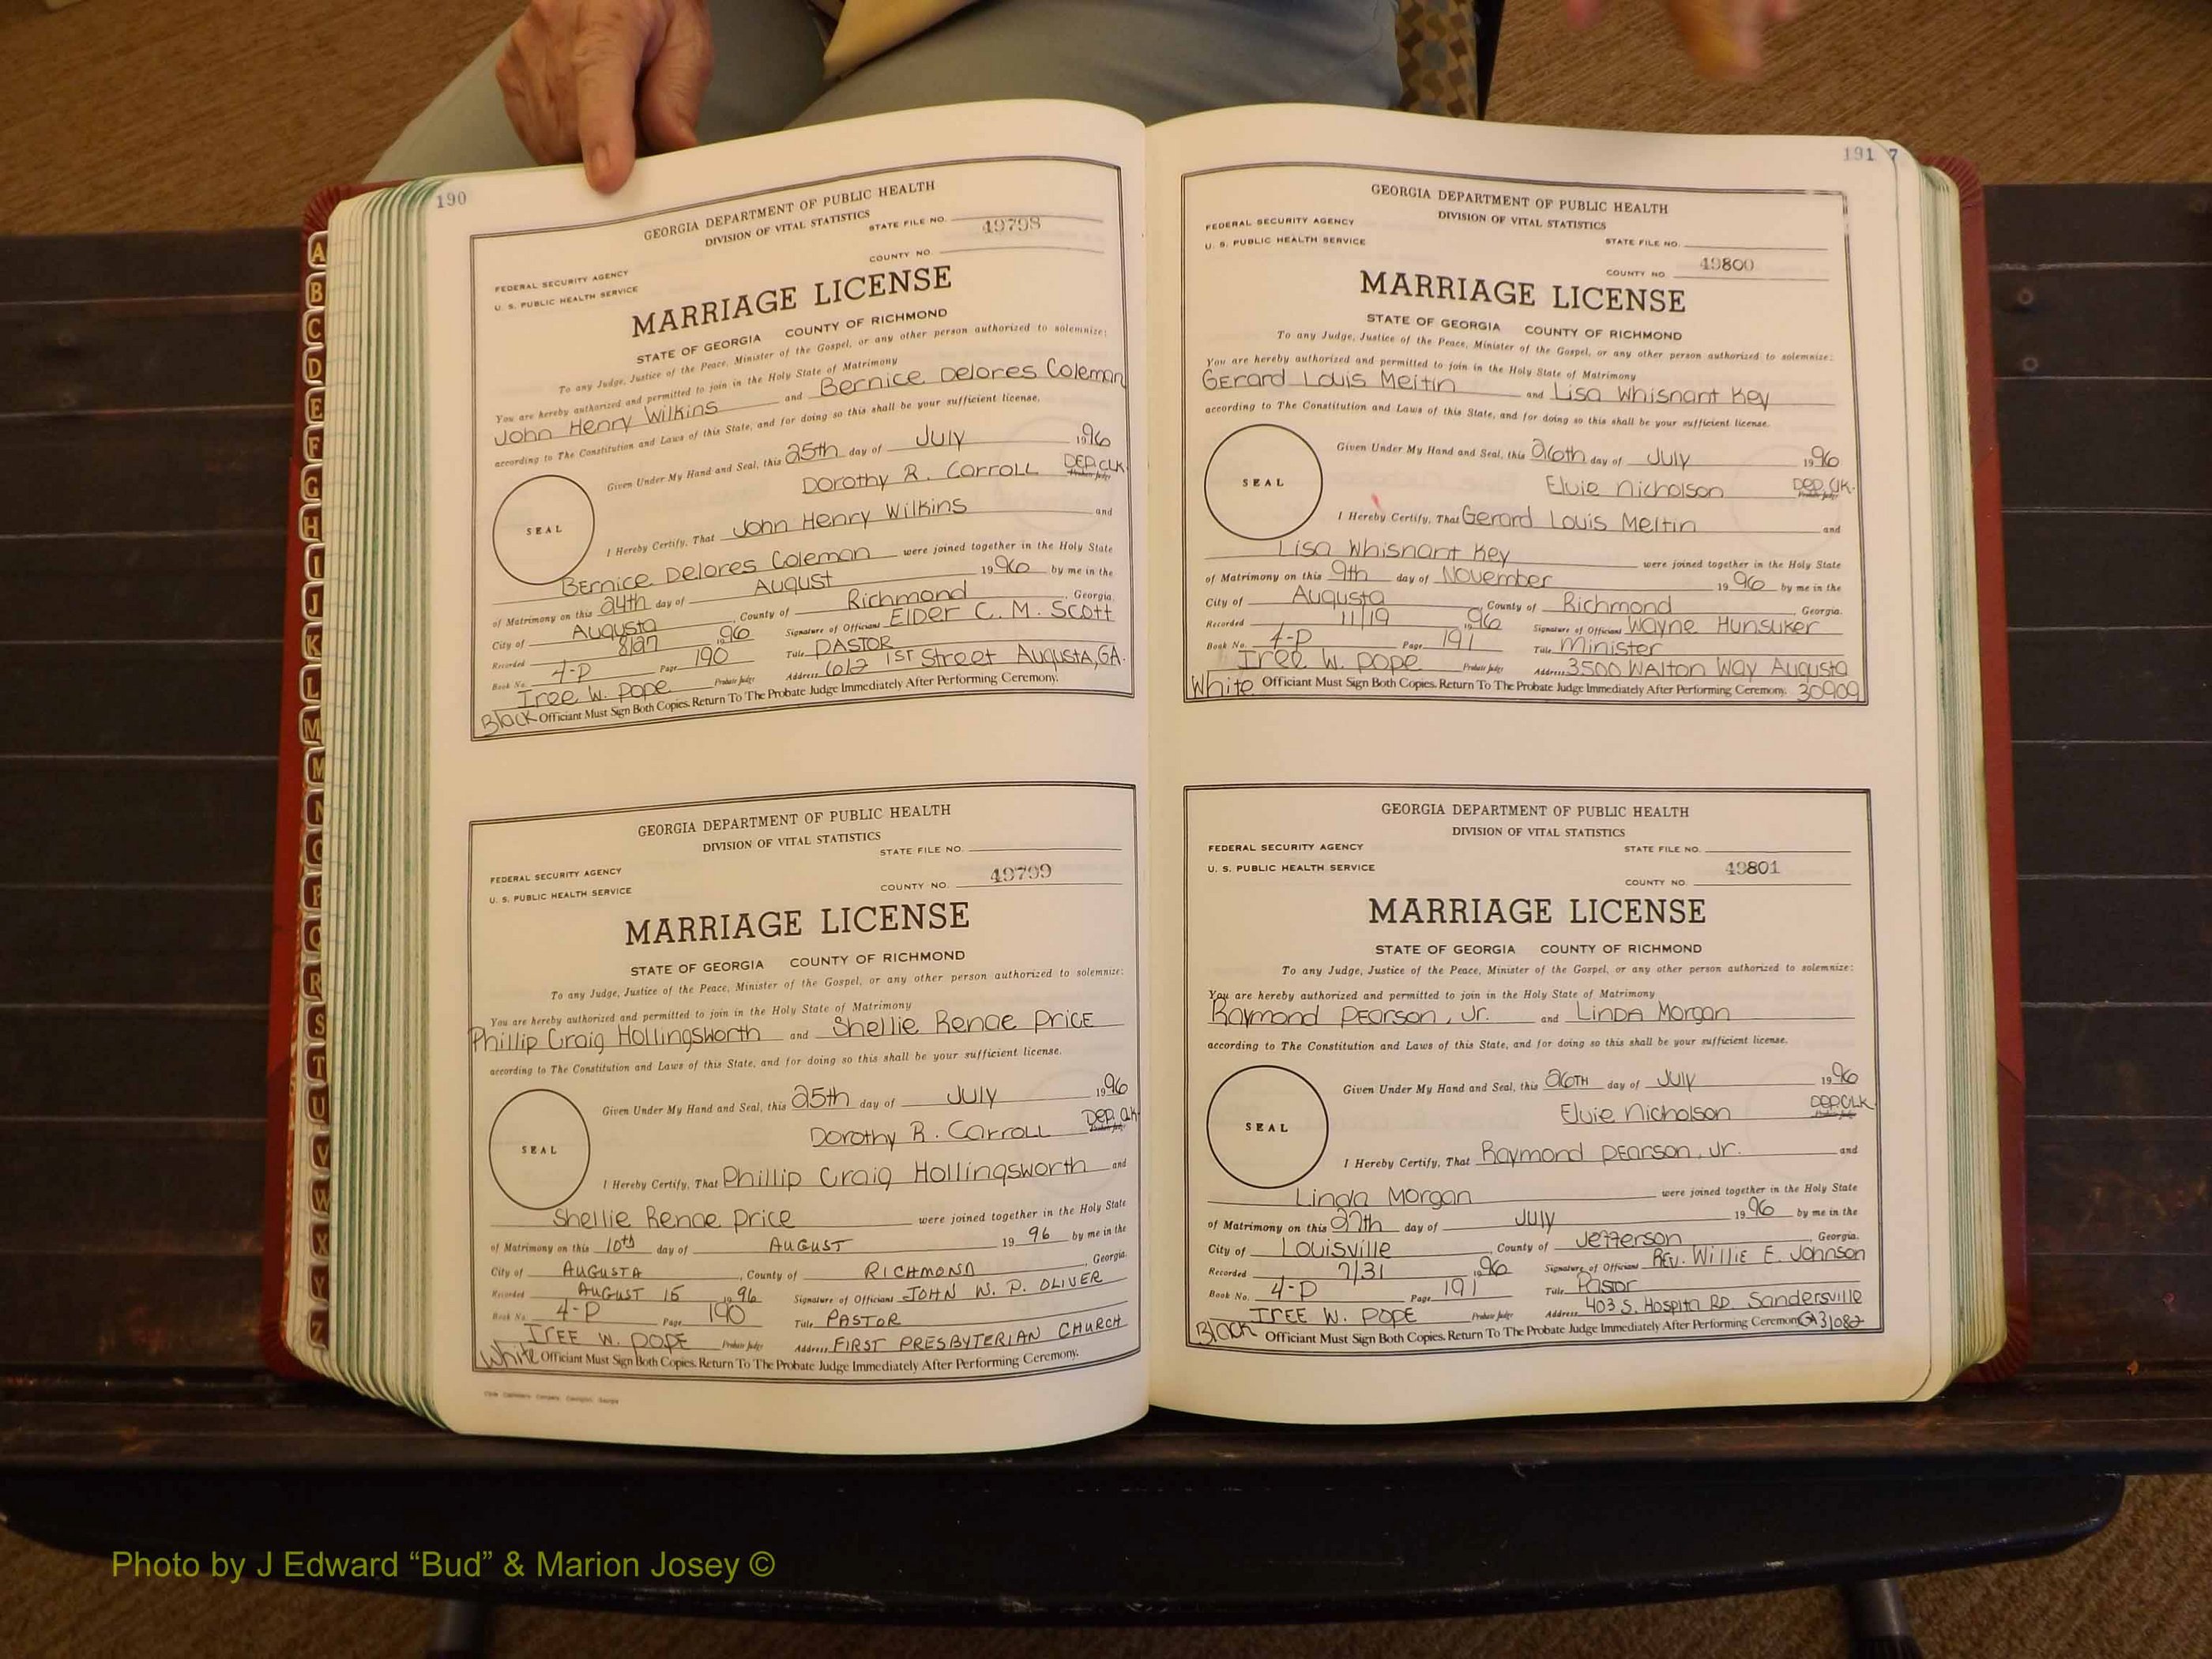 A
B
C
D
E
F
G
H
I
J
K
L
M
M
N
O
P
Q
R
S
T
U
V
W
X
Y
Z
190
GEORGIA DEPARTMENT OF PUBLIC HEALTH
DIVISION OF VITAL STATISTICS
STATE FILE NO. 49798
COUNTY NO
FEDERAL SECURITY AGENCY
U. S. PUBLIC HEALTH SERVICE
MARRIAGE LICENSE
STATE OF GEORGIA COUNTY OF RICHMOND
To any Judge, Justice of the Peace, Minister of the Gospel, or any other person authorized to solemnize:
You are hereby authorized and permitted to join in the Holy State of Matrimony
John Henry Wilkins and Bernice Delores Coleman
according to The Constitution and Laws of this State, and for doing so this shall be your sufficient license.
Given Under My Hand and Seal, this 25th day of July 1996
Dorothy R. Carroll DEP. CLK. Probate Judge
SEAL
I Hereby Certify, That John Henry Wilkins and
Bernice Delores Coleman were joined together in the Holy State
of Matrimony on this 24th day of August 1996 by me in the
City of Augusta, County of Richmond, Georgia.
Recorded 8/27 1996 Signature of Officiant Elder C. M. Scott
Book No. 4-P Page 190 Title PASTOR
Iree W. Pope Probate Judge Address 1st Street Augusta, GA.
Black Officiant Must Sign Both Copies. Return To The Probate Judge Immediately After Performing Ceremony.
GEORGIA DEPARTMENT OF PUBLIC HEALTH
DIVISION OF VITAL STATISTICS
STATE FILE NO.
FEDERAL SECURITY AGENCY
U. S. PUBLIC HEALTH SERVICE
COUNTY NO. 49799
MARRIAGE LICENSE
STATE OF GEORGIA COUNTY OF RICHMOND
To any Judge, Justice of the Peace, Minister of the Gospel, or any other person authorized to solemnize:
You are hereby authorized and permitted to join in the Holy State of Matrimony
Phillip Craig Hollingsworth and Shellie Renae Price
according to The Constitution and Laws of this State, and for doing so this shall be your sufficient license.
Given Under My Hand and Seal, this 25th day of July 1996
Dorothy R. Carroll Dep. Clk. Probate Judge
SEAL
I Hereby Certify, That Phillip Craig Hollingsworth and
Shellie Renae Price were joined together in the Holy State
of Matrimony on this 10th day of AUGUST 1996 by me in the
City of AUGUSTA, County of RICHMOND, Georgia.
Recorded AUGUST 15 1996 Signature of Officiant JOHN W. P. OLIVER
Book No. 4-P Page 190 Title PASTOR
IREE W. POPE Probate Judge Address FIRST PRESBYTERIAN CHURCH
White Officiant Must Sign Both Copies. Return To The Probate Judge Immediately After Performing Ceremony.
191 7
GEORGIA DEPARTMENT OF PUBLIC HEALTH
DIVISION OF VITAL STATISTICS
FEDERAL SECURITY AGENCY
U. S. PUBLIC HEALTH SERVICE
STATE FILE NO.
COUNTY NO 49800
MARRIAGE LICENSE
STATE OF GEORGIA COUNTY OF RICHMOND
To any Judge, Justice of the Peace, Minister of the Gospel, or any other person authorized to solemnize:
You are hereby authorized and permitted to join in the Holy State of Matrimony
Gerard Louis Meltin and Lisa Whisnant Key
according to The Constitution and Laws of this State, and for doing so this shall be your sufficient license.
Given Under My Hand and Seal, this 26th day of July 1996
Elvie Nicholson Dep. Clk. Probate Judge
SEAL
I Hereby Certify, That Gerard Louis Meltin and
Lisa Whisnant Key were joined together in the Holy State
of Matrimony on this 9th day of November 1996 by me in the
City of Augusta, County of Richmond, Georgia.
Recorded 11/19 1996 Signature of Officiant Wayne Hunsuker
Book No. 4-P Page 191 Title Minister
Iree W. Pope Probate Judge Address 3500 Walton Way Augusta
White Officiant Must Sign Both Copies. Return To The Probate Judge Immediately After Performing Ceremony. 30909
GEORGIA DEPARTMENT OF PUBLIC HEALTH
DIVISION OF VITAL STATISTICS
FEDERAL SECURITY AGENCY
STATE FILE NO.
U. S. PUBLIC HEALTH SERVICE
COUNTY NO 49801
MARRIAGE LICENSE
STATE OF GEORGIA COUNTY OF RICHMOND
To any Judge, Justice of the Peace, Minister of the Gospel, or any other person authorized to solemnize:
You are hereby authorized and permitted to join in the Holy State of Matrimony
Raymond Pearson, Jr. and Linda Morgan
according to The Constitution and Laws of this State, and for doing so this shall be your sufficient license.
Given Under My Hand and Seal, this 26TH day of July 1996
Elvie Nicholson DEP CLK. Probate Judge
SEAL
I Hereby Certify, That Raymond Pearson, Jr. and
Linda Morgan were joined together in the Holy State
of Matrimony on this 27th day of July 1996 by me in the
City of Louisville, County of Jefferson, Georgia.
Recorded 7/31 1996 Signature of Officiant Rev. Willie E. Johnson
Book No. 4-P Page 191 Title Pastor
IREE W. POPE Probate Judge Address 403 S. Hospita RD. Sandersville
Black Officiant Must Sign Both Copies. Return To The Probate Judge Immediately After Performing Ceremony GA 31082
Photo by J Edward “Bud” & Marion Josey ©